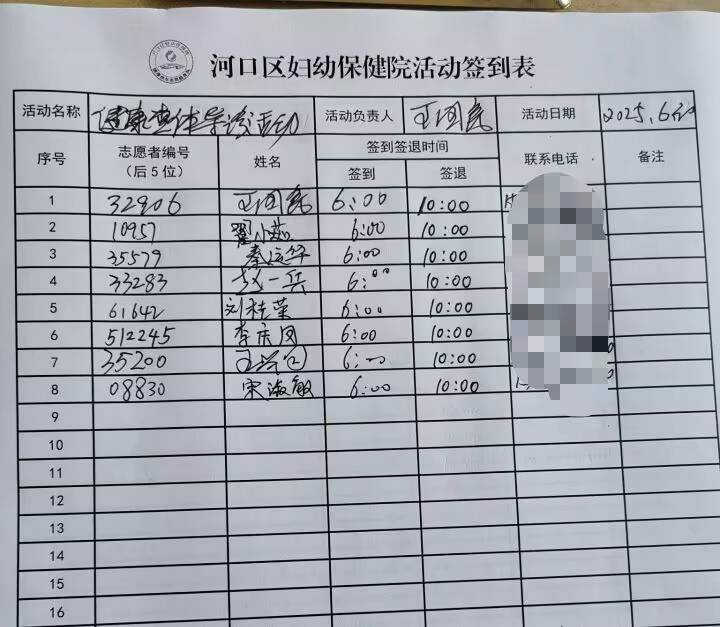 河口区妇幼保健院活动签到表
活动名称 健康查体导诊活动 活动负责人 活动日期 2025.6
序号 志愿者编号（后5位） 姓名 签到签退时间 联系电话 备注
签到 签退
1 32906 6:00 10:00
2 10957 翟小茹 6:00 10:00
3 35579 秦运华 6:00 10:00
4 33283 赵一兵 6:00 10:00
5 61642 刘桂荣 6:00 10:00
6 512245 李庆凤 6:00 10:00
7 35200 6:00 10:00
8 08830 宋淑敏 6:00 10:00
9
10
11
12
13
14
15
16